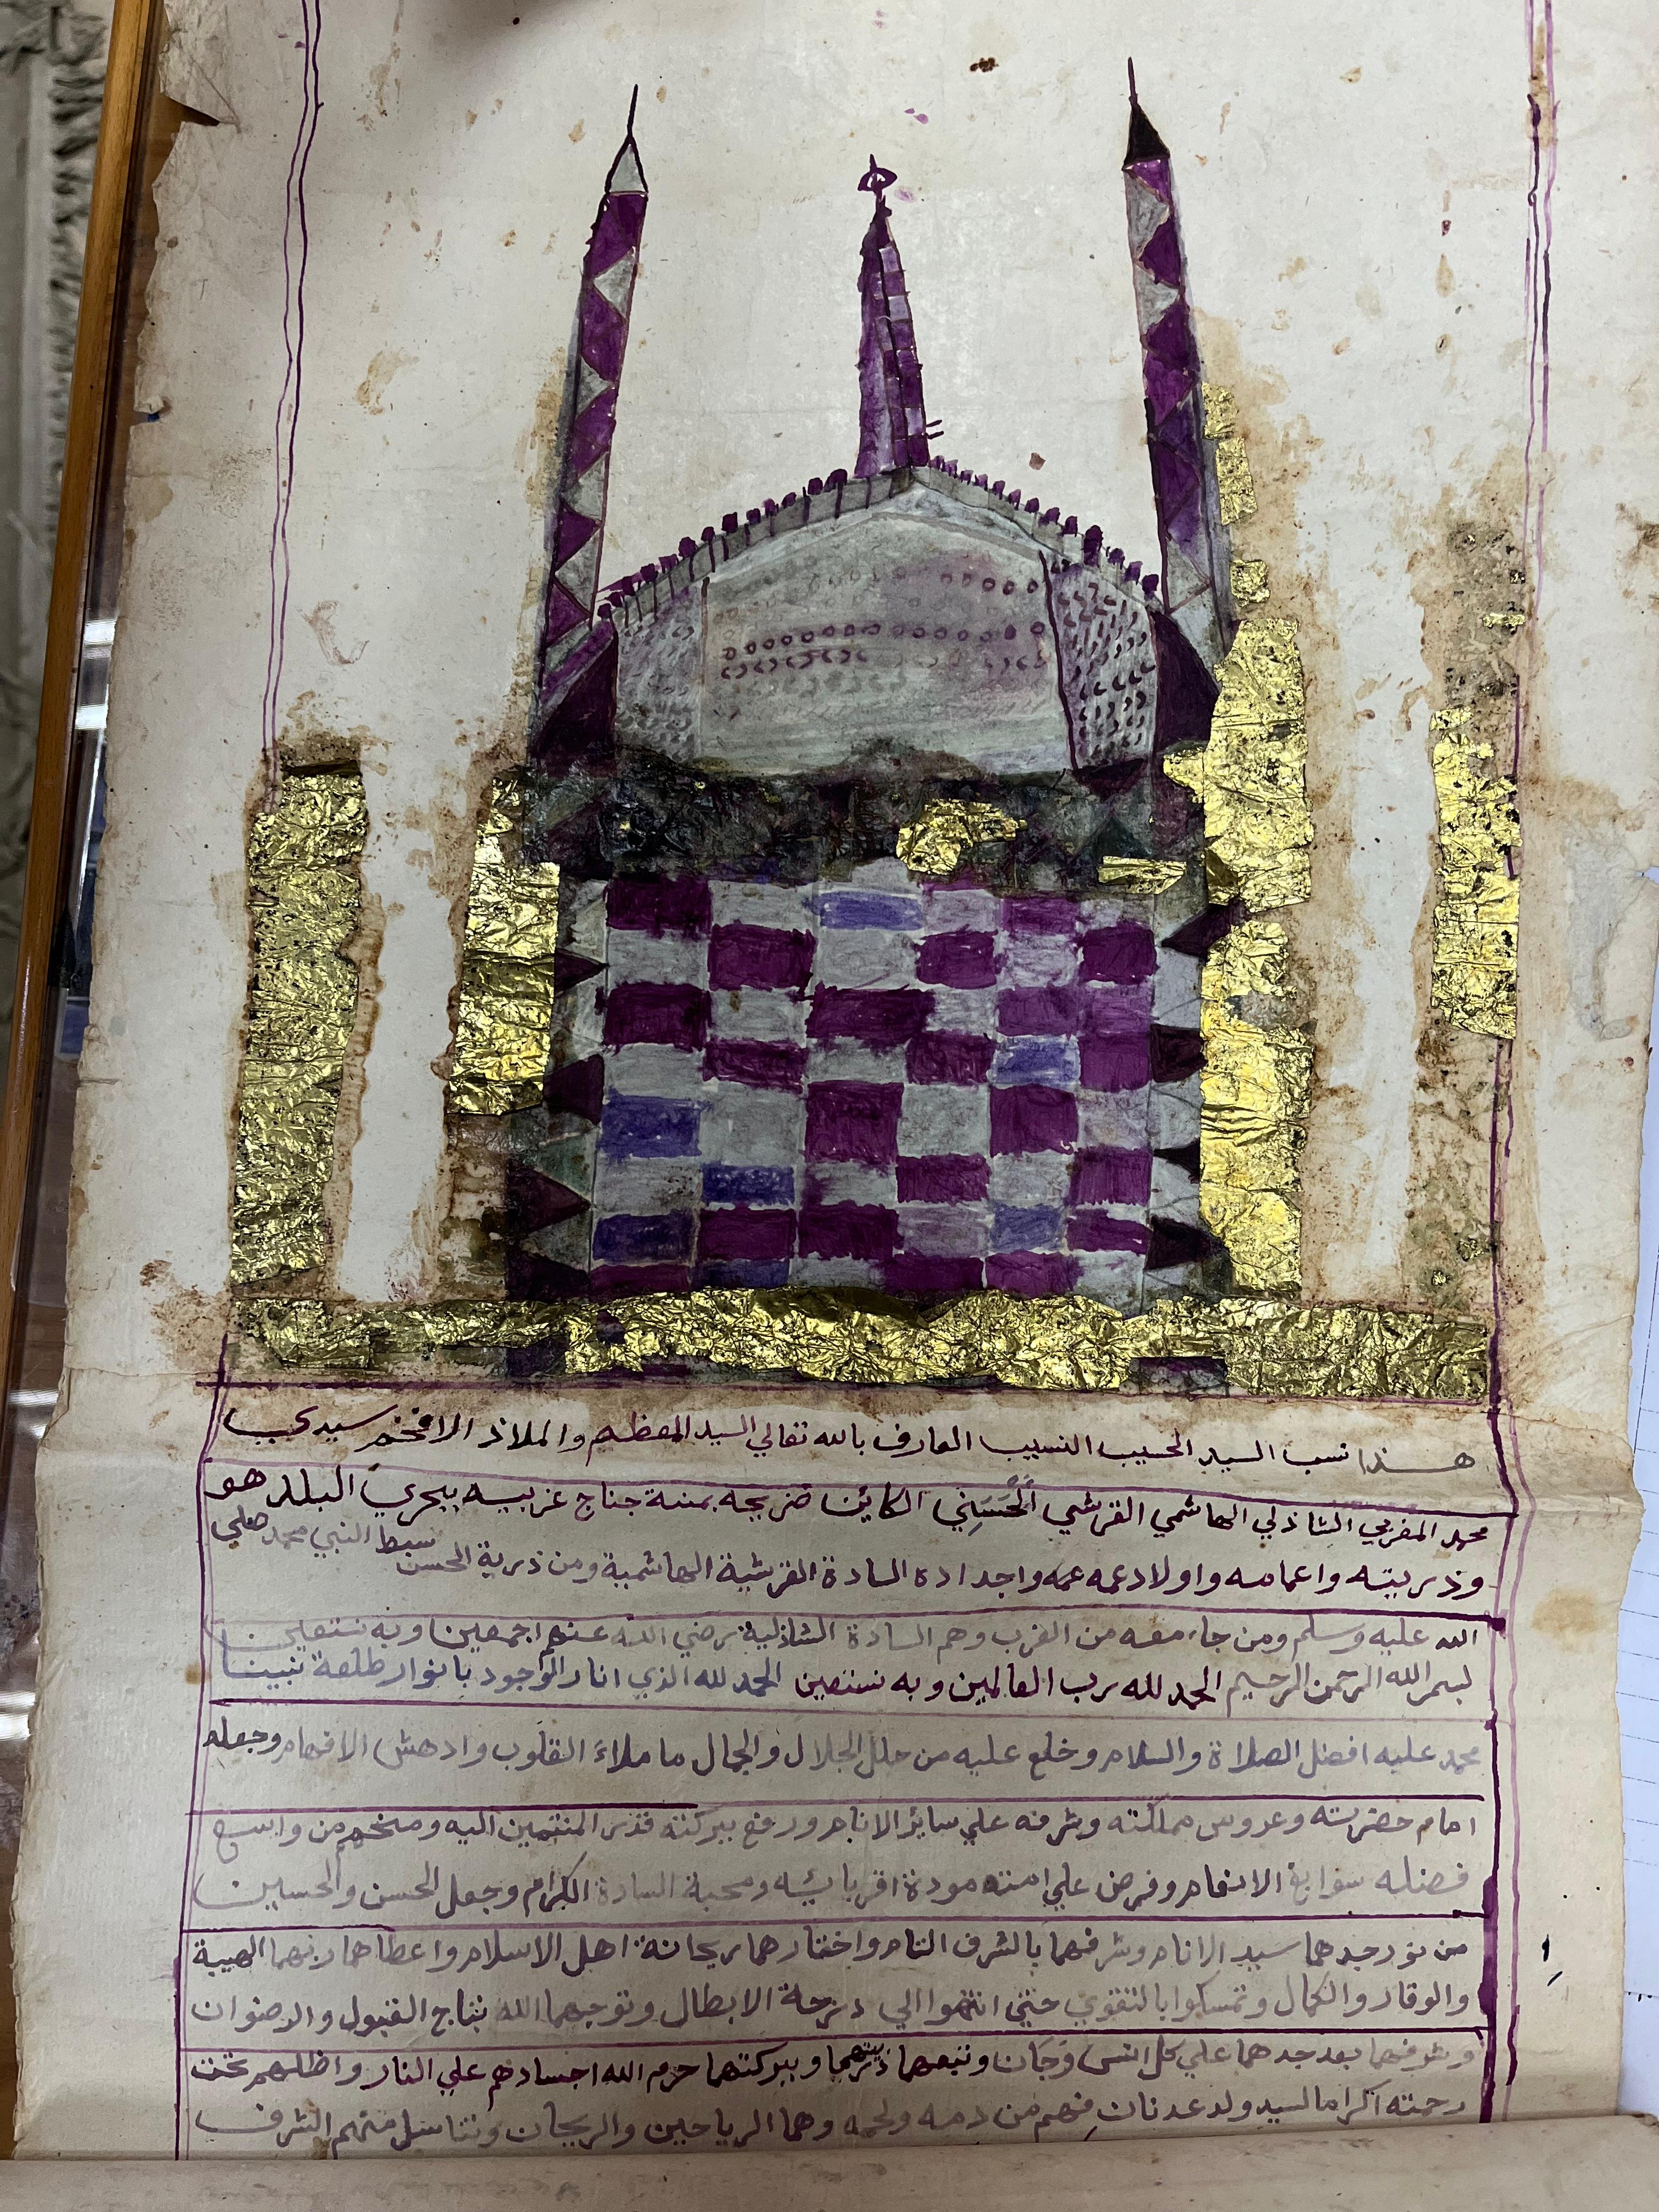 هذا نسب السيد الحسيب النسيب العارف بالله تعالي السيد المعظم والملاذ الافخم سيدي
محمد المغربي الشاذلي الهاشمي القرشي الحَسَني الكائن ضريحه بمنة جناج غربيه ببحري البلد هو
وذريته واعمامه واولادعمه عمه واجداده السادة القرشية الهاشمية ومن ذرية الحسن سبط النبي محمد صلي
الله عليه وسلم ومن جاء معه من الغرب وهم السادة الشاذلية رضي الله عنهم اجمعين وبه نستعين
بسم الله الرحمن الرحيم الحمد لله رب العالمين وبه نستعين الحمد لله الذي انار الوجود بانوار طلعة نبينا
محمد عليه افضل الصلاة والسلام وخلع عليه من حلل الجلال والجمال ما ملاء القلوب وادهش الافهام وجعله
امام حضرته وعروس مملكته وشرفه علي سائر الانام ورفع ببركته قدر المنتمين اليه ومنحهم من واسع
فضله سوابغ الانعام وفرض علي امته مودة اقربائه ومحبة السادة الكرام وجعل الحسن والحسين
من نور جدهما سيد الانام وشرفهما بالشرف التام واختارهما ريحانة اهل الاسلام واعطاهما ربهما الهيبة
والوقار والكمال وتمسكوا بالتقوي حتي انتهوا الي درجة الابطال وتوجهما الله بتاج القبول والرضوان
وشرفهما بعد جدهما علي كل انس وَجَان وتبعهما ذريتهما وببركتهما حرم الله اجسادهم علي النار واظلهم تحت
رحمته اكراما لسيد ولد عدنان فهم من دمه ولحمه وهما الرياحين والريحان وتناسل منهم الشرف